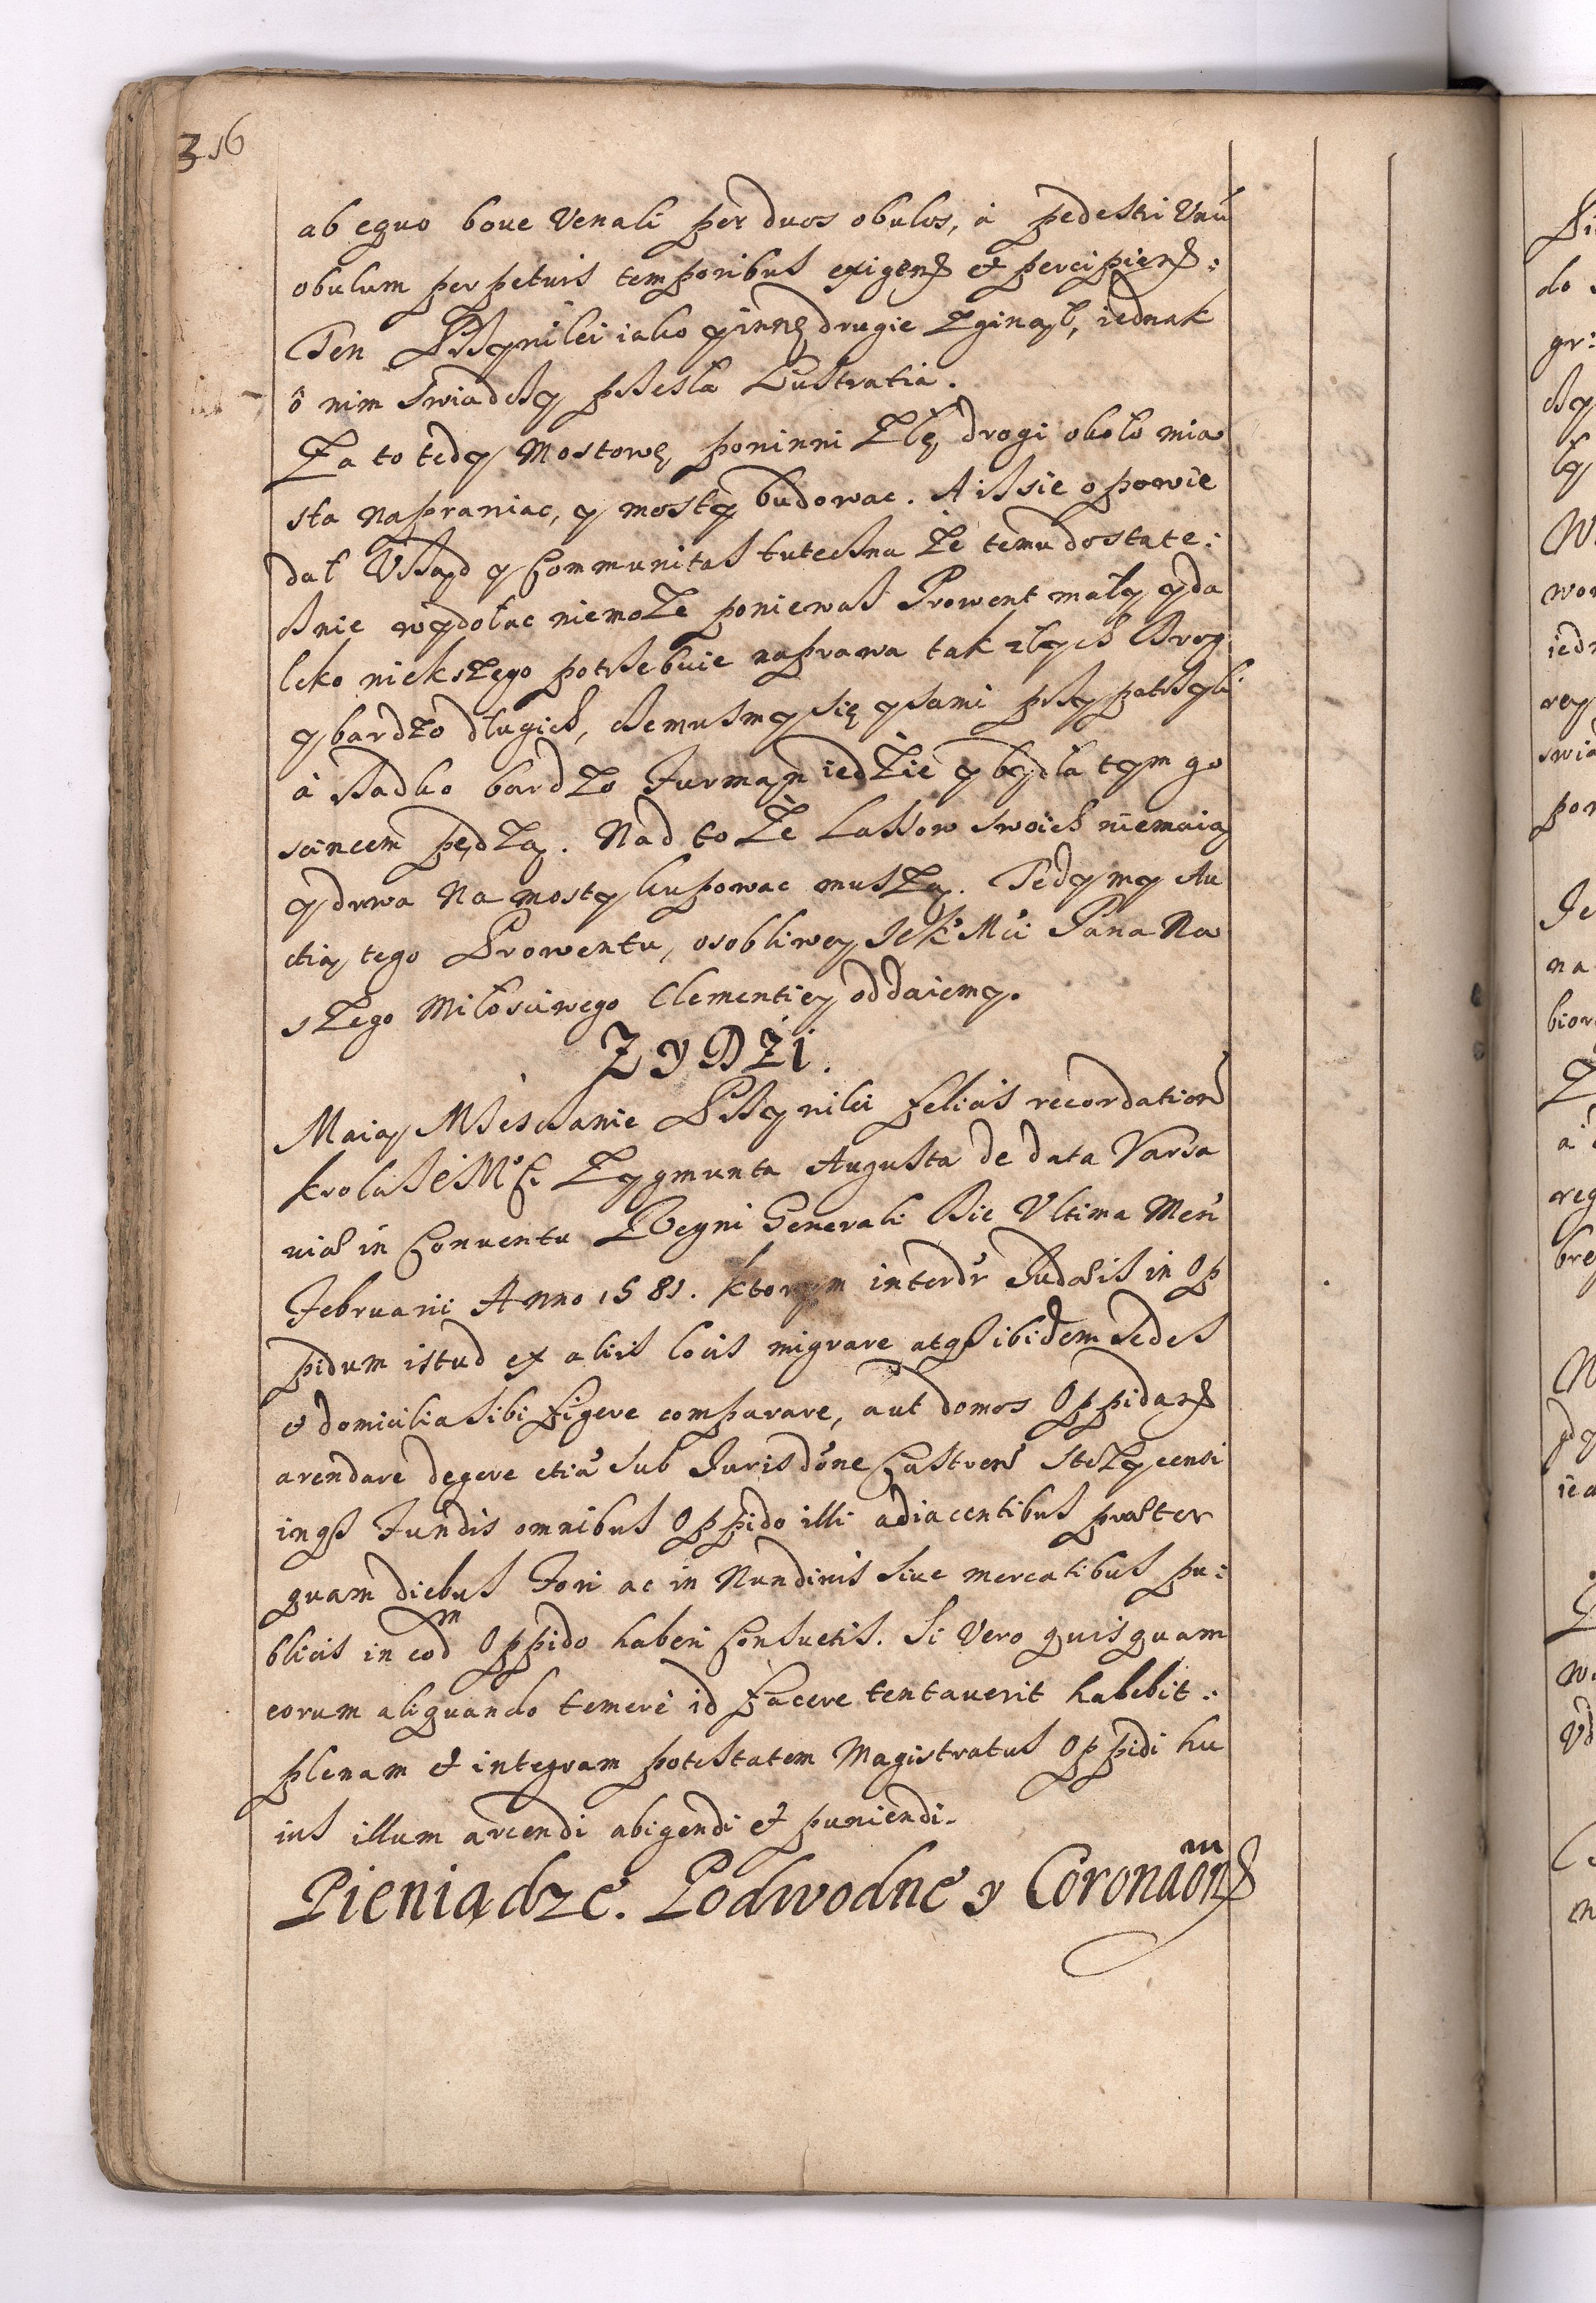 316
ab equo boue Venali per duos obulos, à pedestri Vnũ
obulum perpetuis temporibus exigend et percipiend:
Ten Przywilei iako y inne drugie zginął, iednak
o nim swiadczy przeszła Lustratia.
Za to tedy Mostowe powinni złe drogi około mia
sta naprawiac, y mosty budowac. A isz sie opowie
dał Vrząd y Communitas tuteczna że temu dostate:
cznie wydołac niemoże poniewasz Prowent mały y da
leko wiekszego potrzebuie naprawa tak złych drog
y bardzo długich, czemusmy się y sami przypatrzyli
à rzadko bardzo Furman iedzie y bydła tym go
scincem pędzą. Nad to że Lassow swoich niemaią
y drwa na mosty kupowac muszą. Tedy my Au
ctią tego Prowentu, osobliwey JeKr Mci Pana Na
szego Miłosciwego Clementiey oddaiemy.
ZYDZI.
Maią Miesczanie Przywilei felicis recordation
krola JeMC. Zygmunta Augusta de data Varsa
uiæ in Conuentu Regni Generali Die Vltima Men
Februarii Anno 1581. ktorym interdr Judæis in Op
pidum istud ex aliis locis migrare atqz ibidem sedes
et domicilia sibi figere comparare, aut domos Oppidan
arendare degere etiã sub Jurisdone Castren Stezycensi
inqz Fundis omnibus Oppido illi adiacentibus præter
quam diebus Fori ac in Nundinis siue mercatibus pu:
blicis in eodm Oppido haberi Consuetis. Si Vero quisquam
eorum aliquando temerè id facere tentauerit habebit:
plenam et integram potestatem Magistratus Oppidi hu
ius illum arcendi abigendi et puniendi.
Pieniądze. Podwodne y Coronaonm